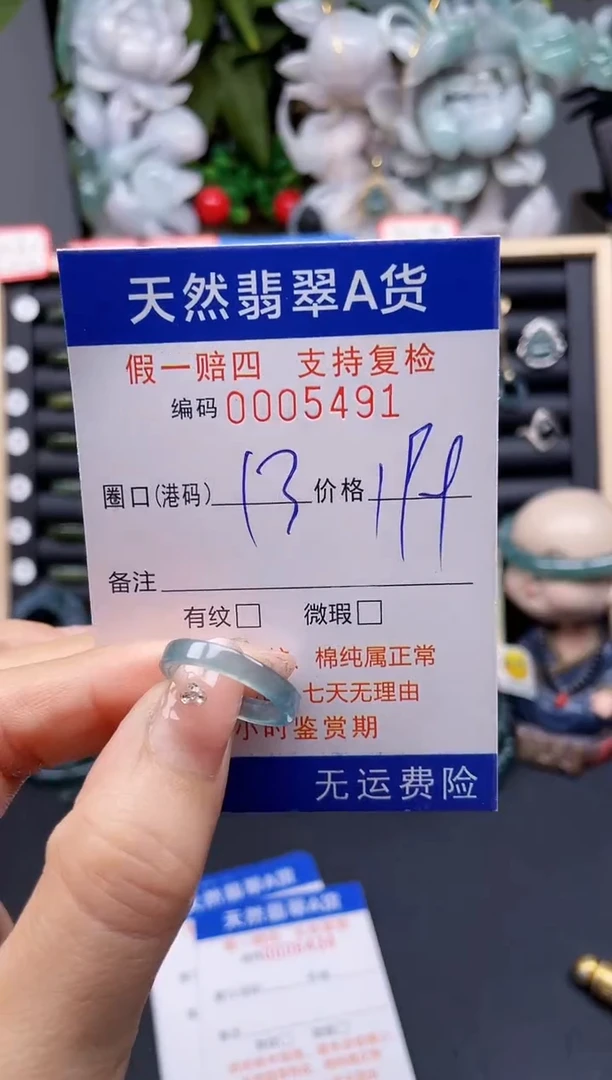 天然翡翠A货
假一赔四 支持复检
编码 0005491
圈口(港码) 13 价格 199
备注
有纹□ 微瑕□
棉纯属正常
七天无理由
小时鉴赏期
无运费险
天然翡翠A货
天然翡翠A货